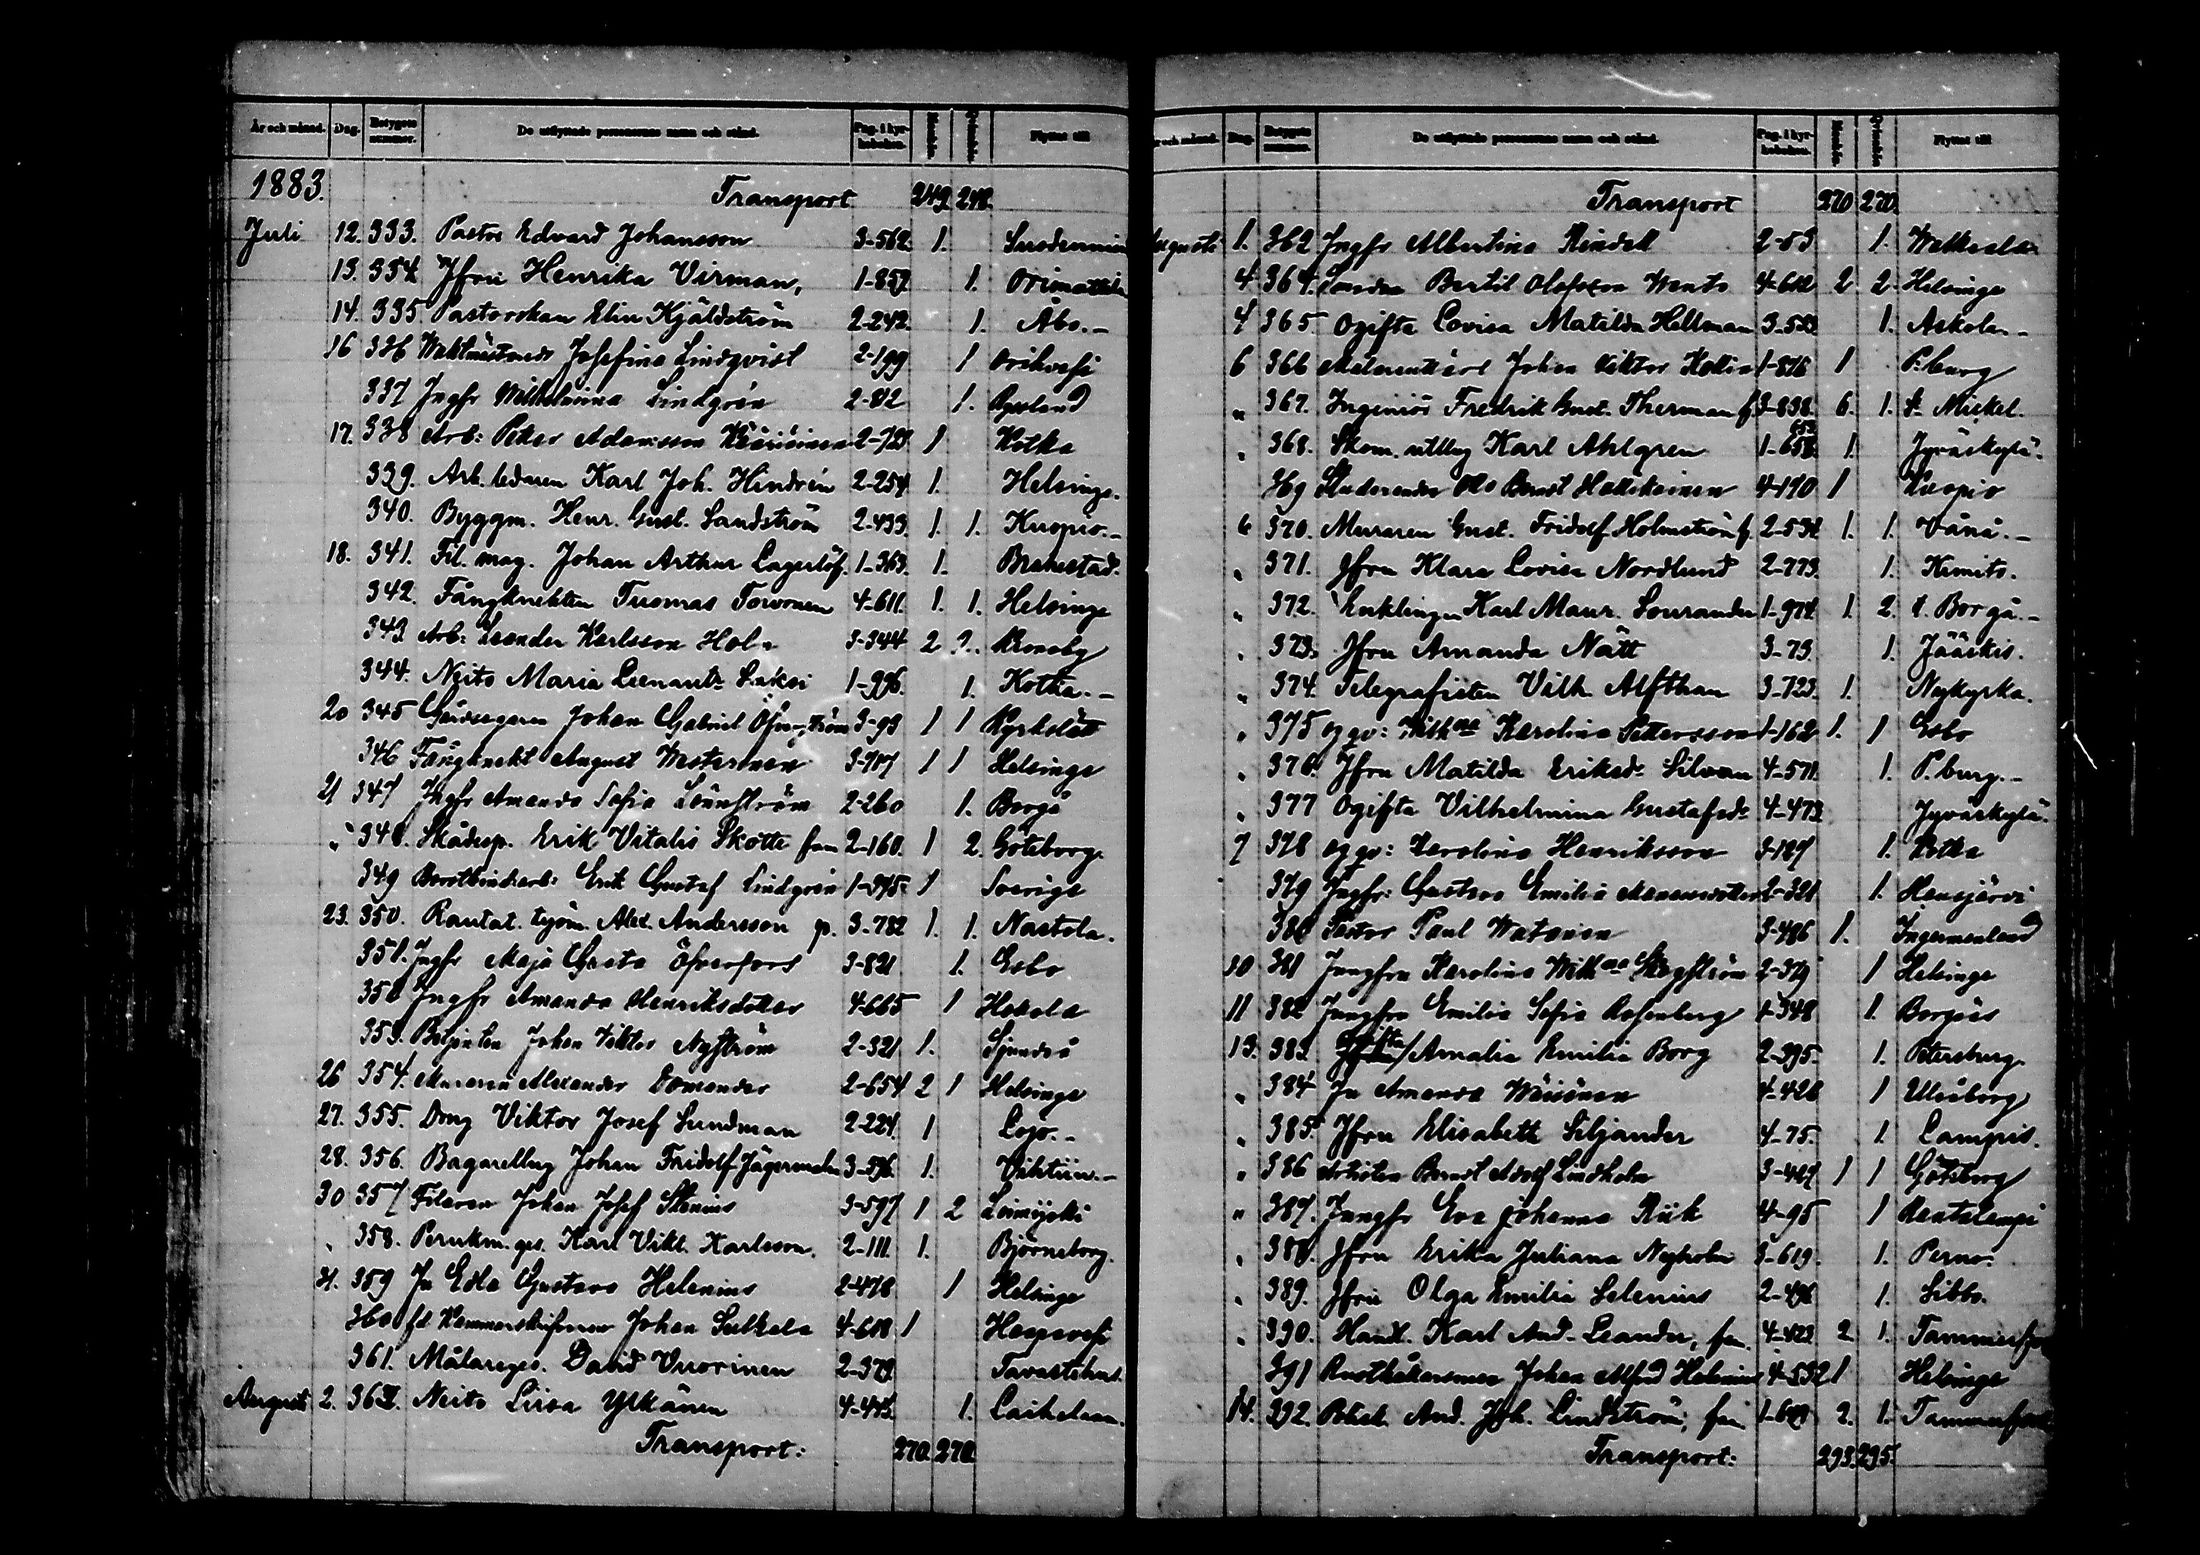 År och månad. Dag. Betygets nummer. De utflyttade personernas namn och stånd. Pag. i kyrkoboken. Mankön. Qvinkön. Flyttat till
1883. Transport 249. 248.
Juli 12. 333. Pastor Edvard Johansson 3-562. 1.
13. 334. Jfru Henrika Virman, 1-857. 1. Orimattila
14. 335 Pastorskan Elin Kjäldström 2-242. 1. Åbo.-
16 336 Josefina Lindqvist 2-199 1 Orihvesi
337 Jngfr Wilhelmina Lindgrén 2-812 1.
17. 338 Arb: Peter Adamsson 1 Kotka
339. Arb. ledaren Karl Joh. Hindrén 2-254 1. Helsinge.
340. Byggm. Henr. Gust. Sandström 2-433. 1. 1. Kuopio.-
18. 341. Fil. mag. Johan Arthur Lagerlöf. 1-363. 1. Brahestad.
342. Fångknekten Tuomas Torvonen 4-611. 1. 1. Helsinge
343. Arb: Leander Karlsson Holm 3-344 2 2. Kronoby
344. Neito Maria Leenantr. 1-996. 1. Kotka.-
20 345 Gårdsegaren Johan Gabriel 3-93 1 1 Kyrkslätt
346 Fångknekt August Westerinen 3-707 1 1 Helsinge
21 347 Jngfr Amanda Sofia Lönnström 2-260 1. Borgå
" 348. Skådesp. Erik Vitalis Skotte fam 2-160. 1 2. Göteborg.
349 Borstbind.arb: Erik Gustaf Lindgrén 1-395 1 Sverige
23. 350. Rautat. työm. Alex. Andersson p. 3-782 1. 1. Nastola.
351. Jngfr Maja Greta Öfverfors 3-821 1. Esbo
352 Jngfr Amanda Henriksdotter 4-665 1 Hollola
353. Betjenten Johan Viktor Nyström 2-321 1. Sjundeå
26 354. Muraren Alexander 2-654 2 1 Helsinge
27. 355. Dmg Viktor Josef Sundman 2-224. 1 Lojo.-
28. 356. Bagarellvg Johan Fridolf Jägermalm 3-596. 1. Vihtiin.-
30 357 Filaren Johan Josef Stenius 3-597 1 2 Loimijoki
" 358. Perukm. ges. Karl Vikt. Karlsson. 2-111. 1. Björneborg.
31. 359 Ju Eda Gustava Helenius 2-478 1 Helsinge
360 fd. Kammarskrifvaren Johan Sulkala 4-618 1 Haapavesi
361. Målareges. David Vuorinen 2-373. Tavastehus.
Augusti 2. 362. Neito Liisa Ylkänen 1. Laihelaan.
Transport: 270. 270.
År och månad. Dag. Betygets nummer. De utflyttade personernas namn och stånd. Pag. i kyrkoboken. Mankön. Qvinkön. Flyttat till
Transport 270 270.
Augusti 1. 362 Jngfr Albertina Rindell 2-53 1. Walkeala
4 364. Bertil Olofsson 4-612 2 2. Helsinge
4 365 Ogifta Lovisa Matilda Hellman 3-523. 1. Askola.-
6 366 Johan Viktor 1-876 1 P:burg
" 367. Ingeniör Fredrik Gust. Therman f. 3-838. 6. 1. St. Mickel.
653
" 368. Skom. utllvg Karl Ahlgren 1-658. 1. Jyväskylä.
369 Studeranden Otto Bernd. 4-190 1 Kuopio
6 370. Muraren Gust. Fridolf Holmström f. 2-534. 1. 1. Vånå.-
" 371. Jfru Klara Lovisa Nordlund 2-773. 1. Kimito.
" 372. Enklingen Karl Maur. Lourander 1-974. 1. 2. l. Borgå.-
" 373. Jfru Amanda Nätt 3-73. 1. Jääskis.
" 374. Telegrafisten Vilh. Alfthan 3-723. 1. Nykyrka.
" 375 og qv: Wilh:na Karolina Pettersson 1-162 1. 1 Esbo
" 376. Jfru Matilda Eriksd:r Silvan 4-571. 1. P.burg.-
" 377 Ogifta Vilhelmina Gustafsd:r 4-473. Jyväskylä.
7 378 og qv: Karolina Henriksson 3-187 1. Kotka
379 Jngfr: Gustava Emilia 2-321 1. Hausjärvi
380 Pastor Paul Watanen 3-486 1. Ingermanland
10 381 Jungfru Karolina Wilh:na Skogström 2-379 1 Helsinge
11 382 Jungfru Emilia Sofia Rosenberg 1-348 1. Borgås
13. 383. Ogifta Jfrun/ Amalia Emilia Borg 2-395. 1. Petersburg.
" 384 Ju Amanda Wäisänen 4-428 1 Uleåborg
" 385. Jfru Elisabeth Siljander 4-75. 1. Lampis.
" 386 Artisten Berndt Adolf Lindholm 3-427 1 1 Göteborg
" 387. Jungfr Eva Johanna Riik 4-95 1 Rautalampi
" 388. Jfru Erika Juliana Nyholm 3-619. 1. Perno.
" 389. Jfru Olga Emilia Selenius 2-496 1. Sibbo.
" 390. Handl. Karl And. Leander, fam. 4-423. 2. 1. Tammerfors
391 Rusthållarsmon Johan Alfred Helenius 4-532 1 Helsinge
14. 392. And. Joh. Lindström, fam 2. 1. Tammerfors
Transport: 293. 295.